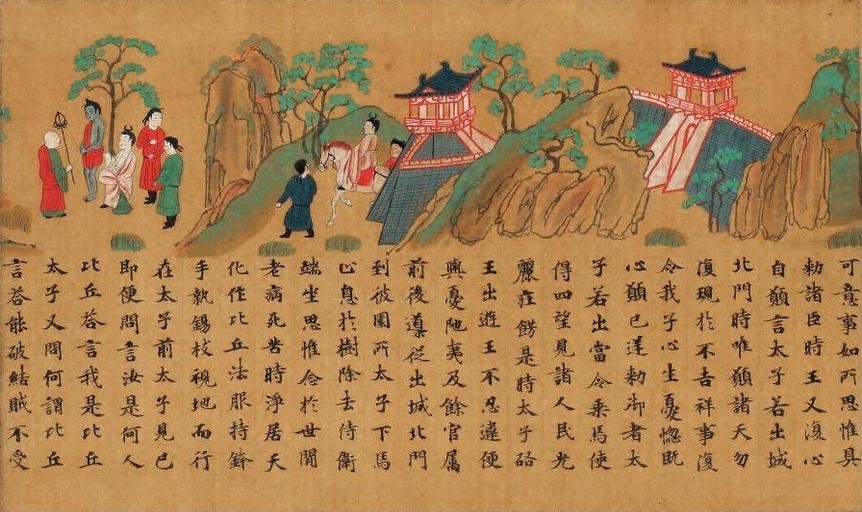 可意事如所思惟具
勅諸臣時王又復心
自願言太子若出城
北門時唯願諸天勿
復現於不吉祥事復
令我子心生憂惱既
心願已遂勅御者太
子若出當令乗馬使
得四望見諸人民光
麗莊餝是時太子啓
王出遊王不忍違便
與憂陁夷及餘官属
前後導従出城北門
到彼園所太子下馬
心息於樹除去侍衛
端坐思惟念於世間
老病死苦時淨居天
化作比丘法服持鉢
手執錫杖視地而行
在太子前太子見已
即便問言汝是何人
比丘荅言我是比丘
太子又問何謂比丘
言荅能破結賊不受